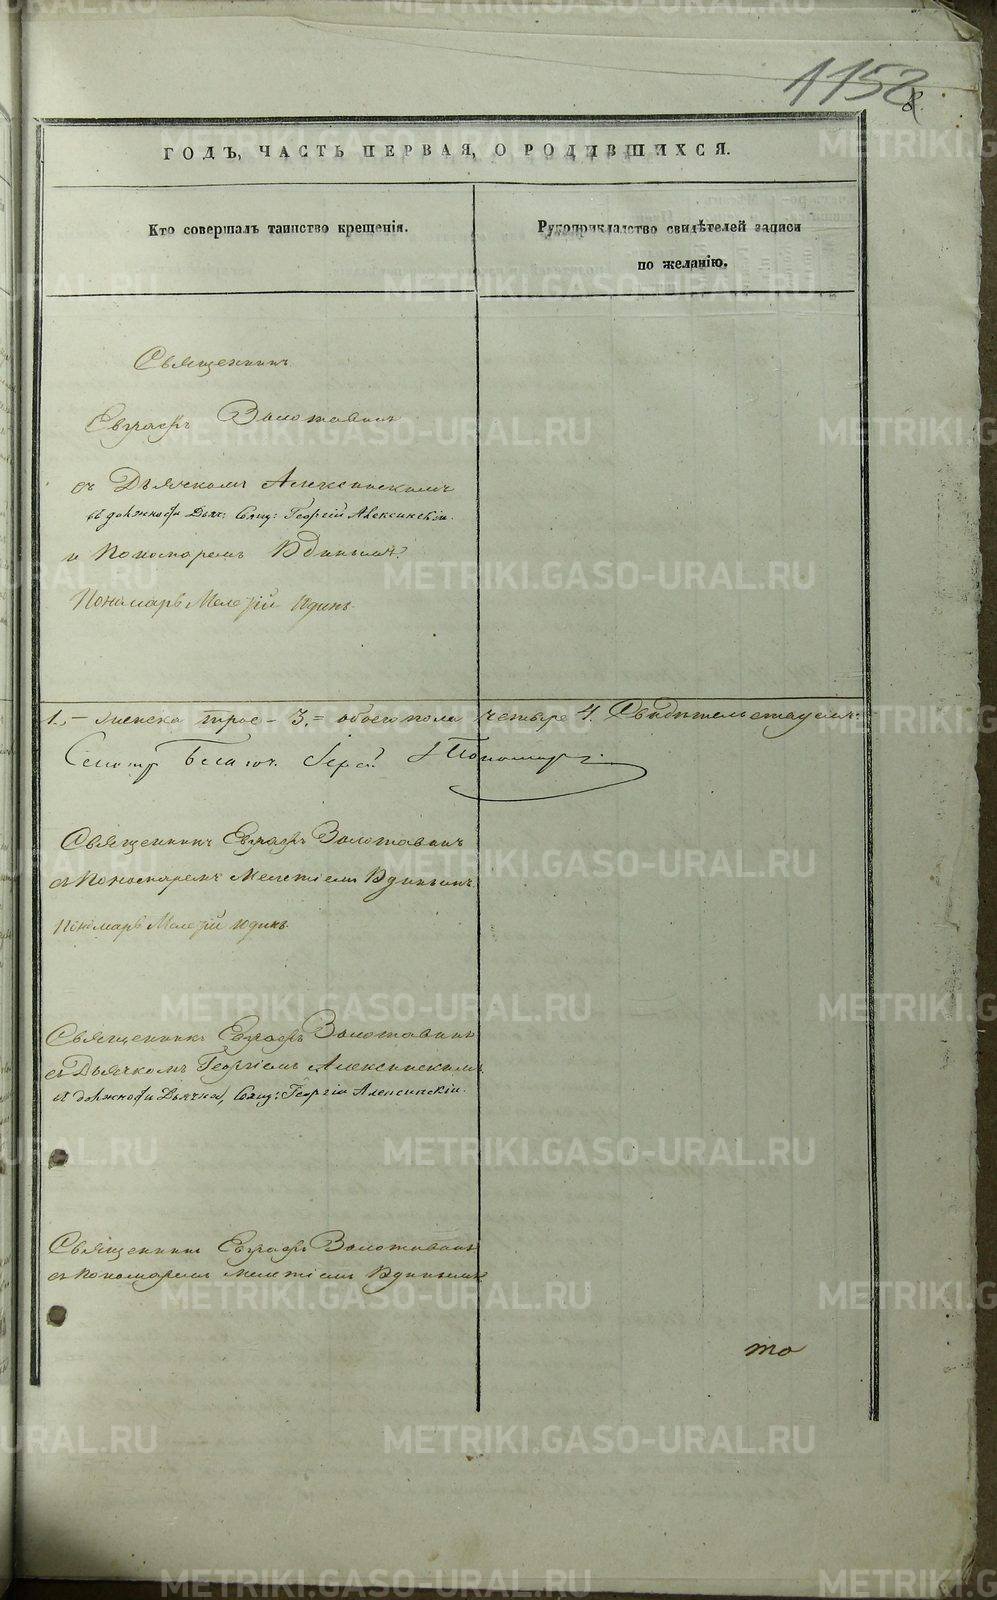 1152
ГОДЪ, ЧАСТЬ ПЕРВАЯ, О РОДИВШИХСЯ.
Кто совершалъ таинство крещенія.
Рукоприкладство свидѣтелей записи
по желанію.
Священникъ
Евграфъ Золотавинъ
съ Дьячкомъ Алексинскимъ
въ должности Дьяч: Свящ: Георгій Алексинскій.
и Пономаремъ Юдинымъ
Пономарь Мелетій Юдинъ.
1. – женска трое – 3. = обоего пола четыре 4. Свидѣтельствуемъ:
Священникъ Евграфъ Золотавинъ
съ Пономаремъ Мелетіемъ Юдинымъ.
Пономарь Мелетій Юдинъ.
Священникъ Евграфъ Золотавинъ
съ Дьячкомъ Георгіемъ Алексинскимъ
въ должности Дьячка, Свящ: Георгій Алексинскій.
Священникъ Евграфъ Золотавинъ
съ Пономаремъ Мелетіемъ Юдинымъ
то
METRIKI.GASO-URAL.RU